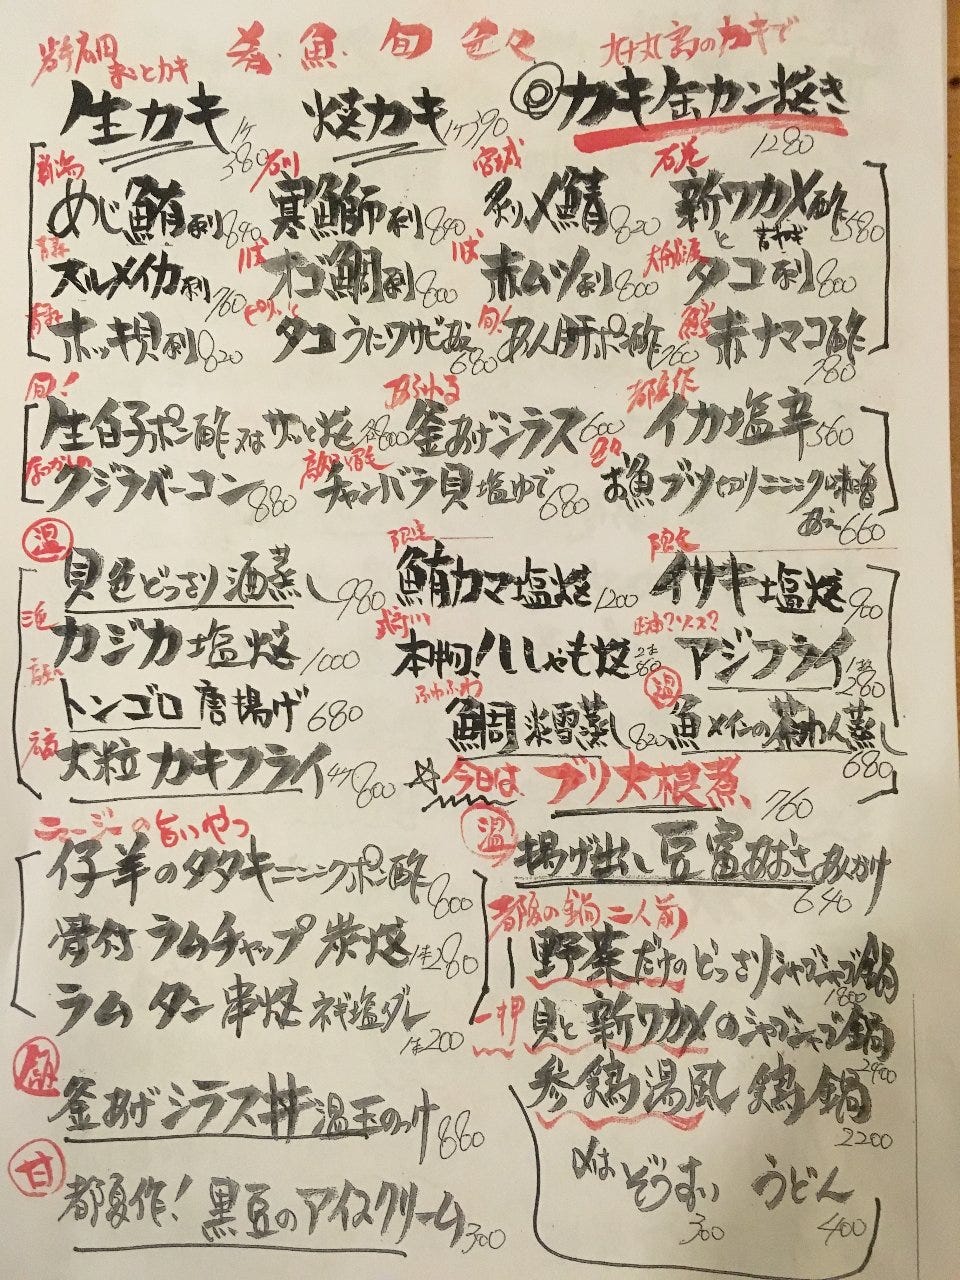 肴・魚・旬 色々
生カキ 1ケ380
焼カキ 1ケ390
◎カキ缶カン焼き 1280
新潟 めじ鮪刺 840
石川 寒鰤刺 840
宮城 〆鯖 820
新ワカメ酢 580
青森 スルメイカ刺 760
オゴ鯛刺 800
赤ムツ刺 800
タコ刺 800
青森 ホッキ貝刺 820
タコうにワサビあえ 680
旬! あん肝ポン酢 760
赤ナマコ酢 780
旬!
生白子ポン酢又はサッと焼 各800
釜あげシラス 600
イカ塩辛 560
なつかしの クジラベーコン 880
チャンバラ貝塩ゆで 680
お魚ブツ切りニンニク味噌あえ 660
温
貝色どっさり酒蒸し 980
限定 鮪カマ塩焼 1200
限定 イサキ塩焼 900
カジカ塩焼 1000
本物!ししゃも焼 2本560
正油?ソース? アジフライ 1枚280
トンゴロ唐揚げ 680
ふわふわ 鯛氷雪蒸し 820
温 魚メインの茶わん蒸し 680
大粒カキフライ 4ケ800
今日は ブリ大根煮 760
ラージーの旨いやつ
仔羊のタタキニンニクポン酢 800
骨付ラムチャップ炭焼 1本280
ラムタン串焼ネギ塩ダレ 1本200
温 揚げ出し豆富あおさあんかけ 640
都夏の鍋 二人前
野菜だけのどっさりシャブシャブ鍋 1800
一押 貝と新ワカメのシャブシャブ鍋 2400
参鶏湯風 鶏鍋 2200
〆は ぞうすい 300 うどん 400
飯
釜あげシラス丼温玉のっけ 880
甘
都夏作! 黒豆のアイスクリーム 300